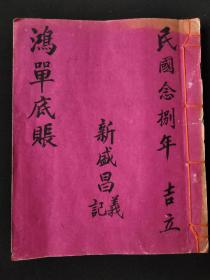 民國念捌年 吉立
新盛昌義記
鴻單底賬